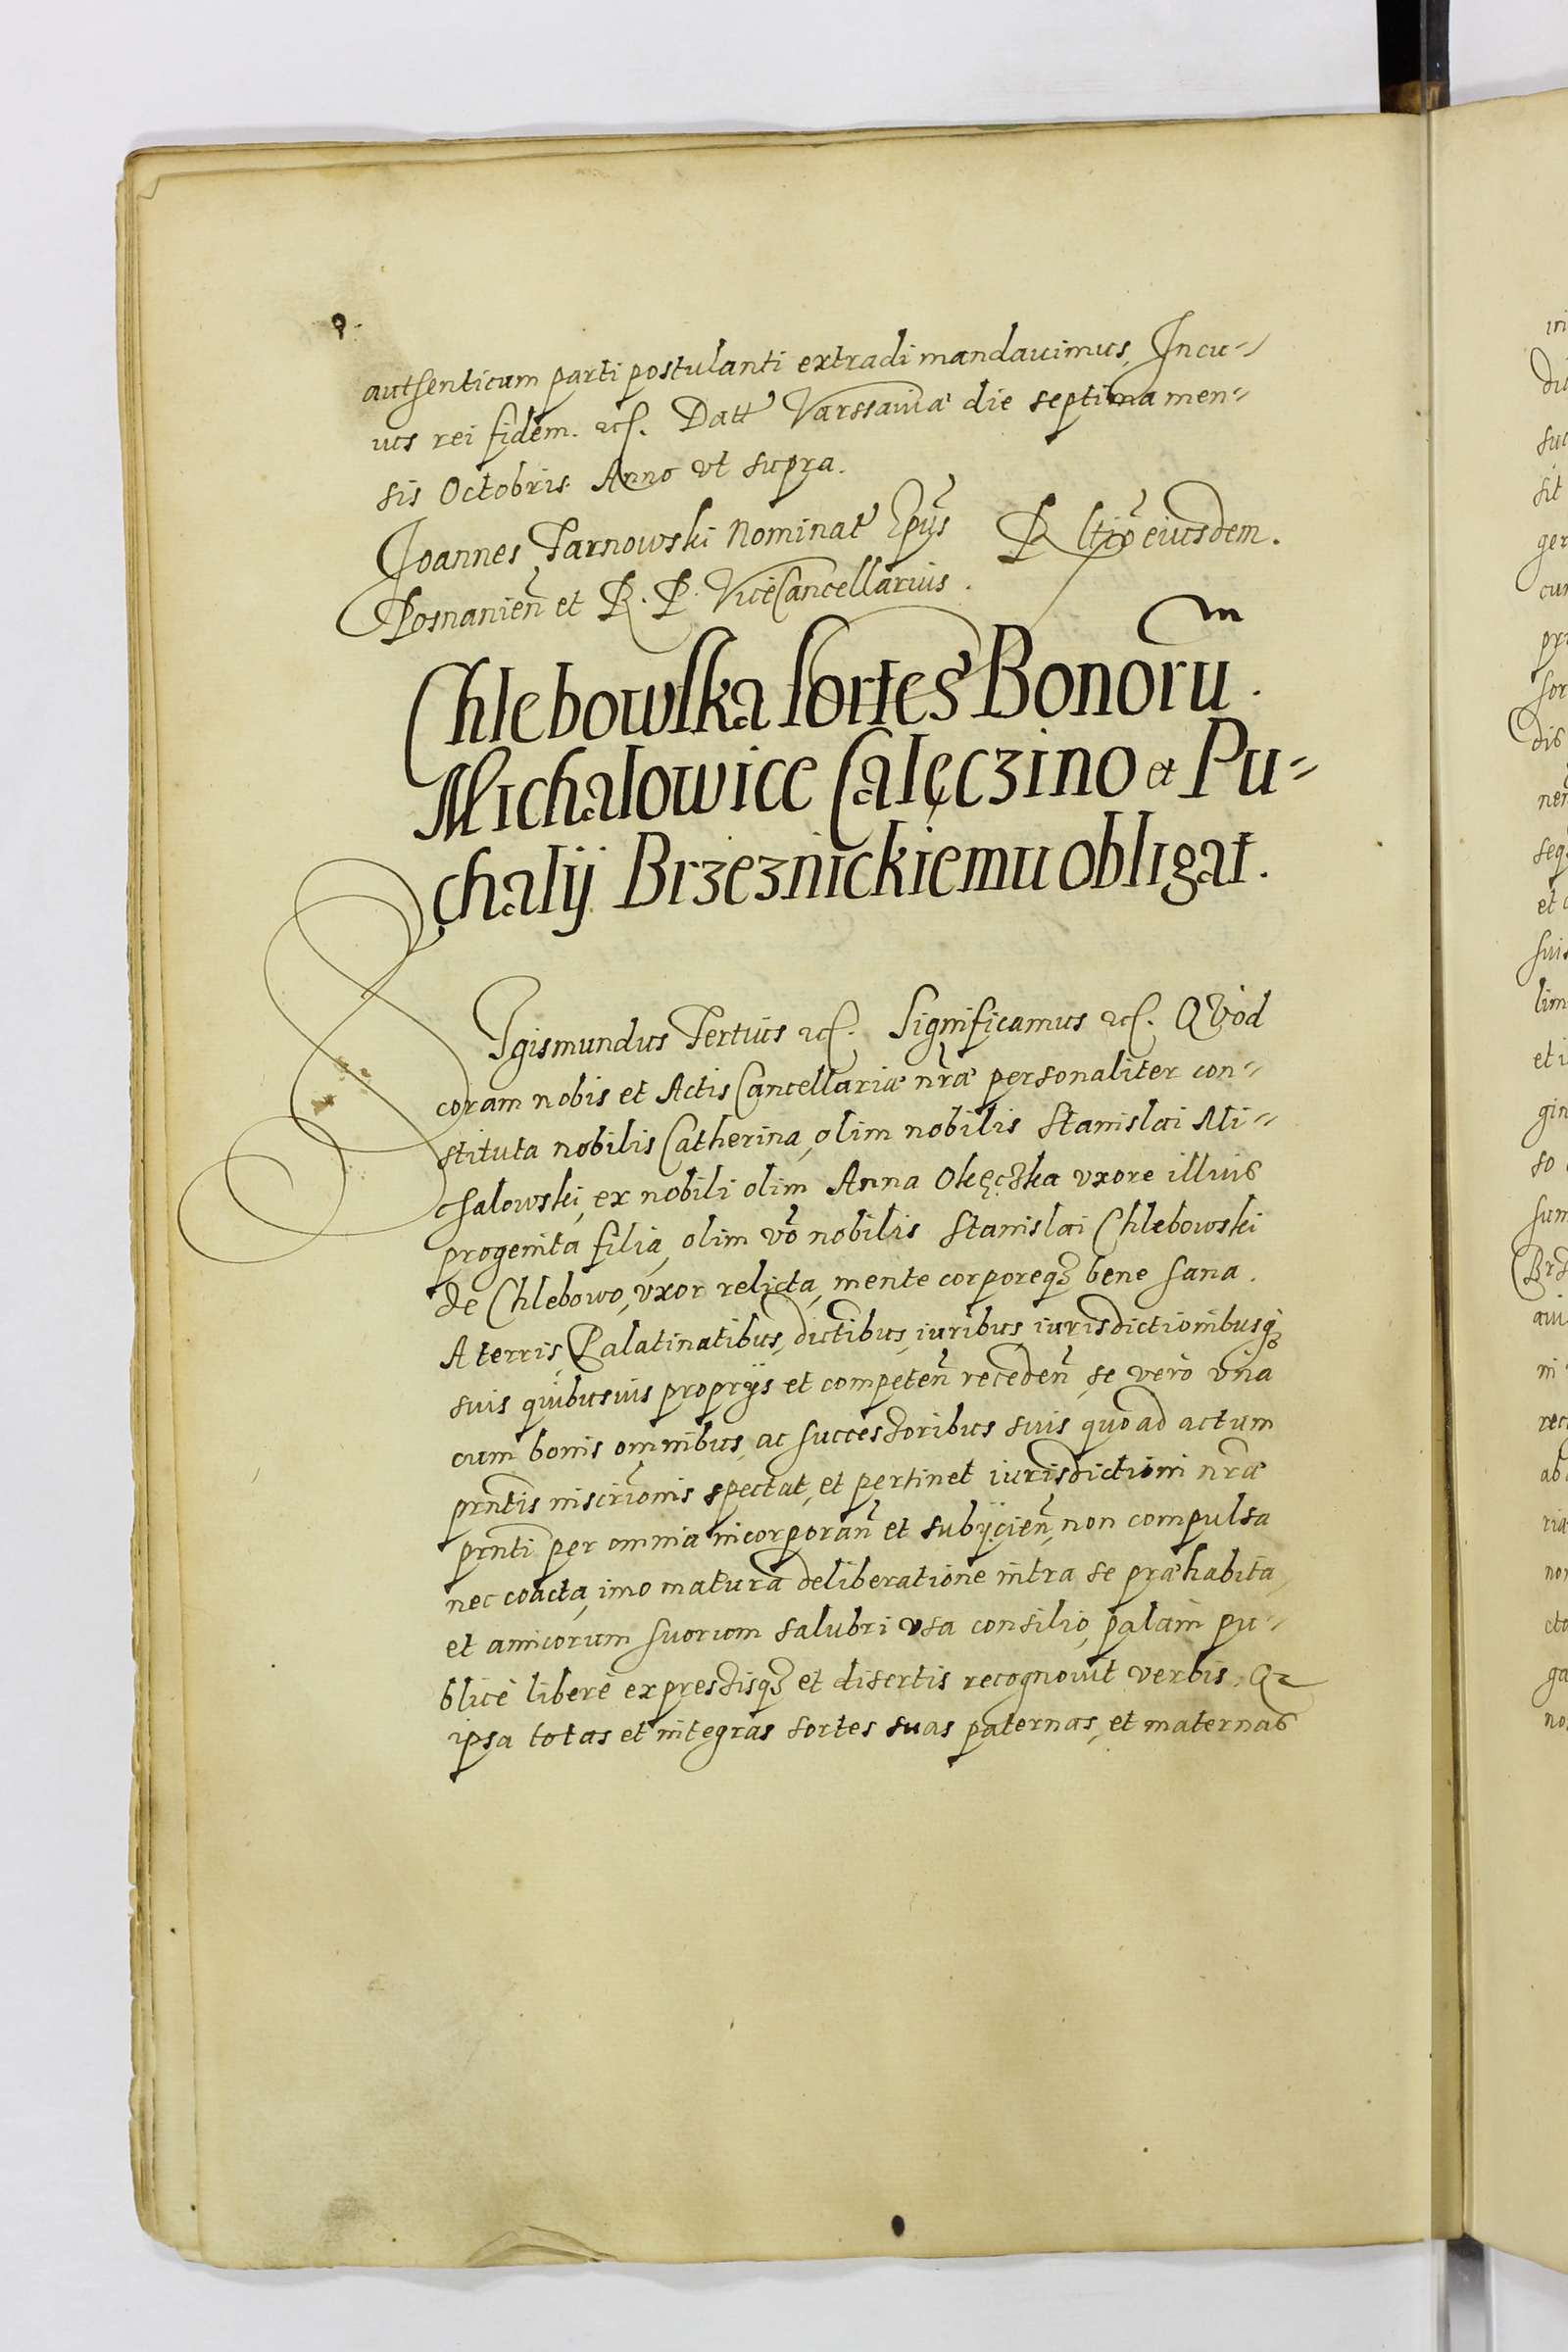 authenticum parti postulanti extradi mandauimus, Incu-
ius rei fidem. etc. Datt Varssauiæ die septima men-
sis Octobris Anno vt supra.
Joannes Tarnowski Nominat Epūs R ltiō eiusdem.
Posnanien̄ et R. P. ViceCancellarius.
Chlebowska sortes Bonorūm.
Michalowice Calęczino et Pu-
chalÿ Brzeznickiemu obligat.
Sigismundus Tertius etc. Significamus etc. Quod
coram nobis et Actis Cancellariæ nr̄æ personaliter con-
stituta nobilis Catherina, olim nobilis Stanislai Mi-
chalowski, ex nobili olim Anna Okęczka vxore illius
progenita filia, olim vō nobilis Stanislai Chlebowski
de Chlebowo, vxor relicta, mente corporeq3 bene sana.
A terris, Palatinatibus, dictibus, iuribus iurisdictionibusq3
suis quibusuis proprÿs et competen̄ receden̄, se vero vna
cum bonis omnibus, ac successoribus suis quo ad actum
prn̄tis inscriōnis spectat, et pertinet iurisdictioni nr̄æ
prn̄ti per omnia incorporan̄ et subÿcien̄, non compulsa
nec coacta, imo matura deliberatione intra se præhabita,
et amicorum suorum salubri vsa consilio, palam pu-
blicè liberè expressisq3 et disertis recognouit verbis. Qz
ipsa totas et integras sortes suas paternas, et maternas